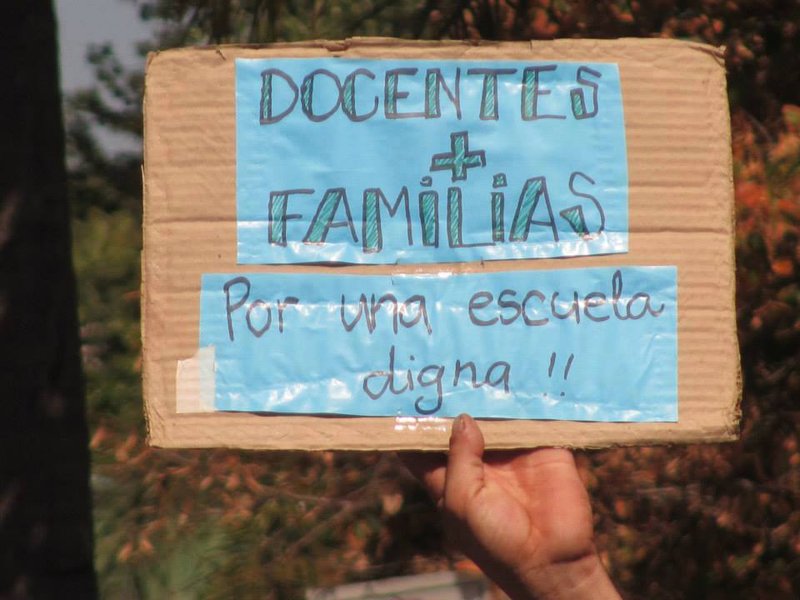 DOCENTES
+
FAMiLiAS
Por una escuela
digna !!